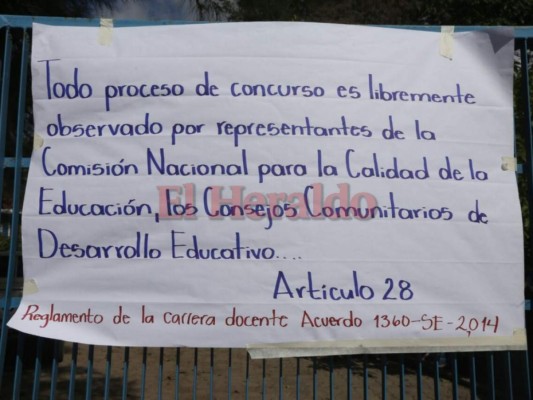 Todo proceso de concurso es libremente
observado por representantes de la
Comisión Nacional para la Calidad de la
El Heraldo
Educación, los Consejos Comunitarios de
Desarrollo Educativo....
Articulo 28
Reglamento de la carrera docente Acuerdo 1360-SE-2014